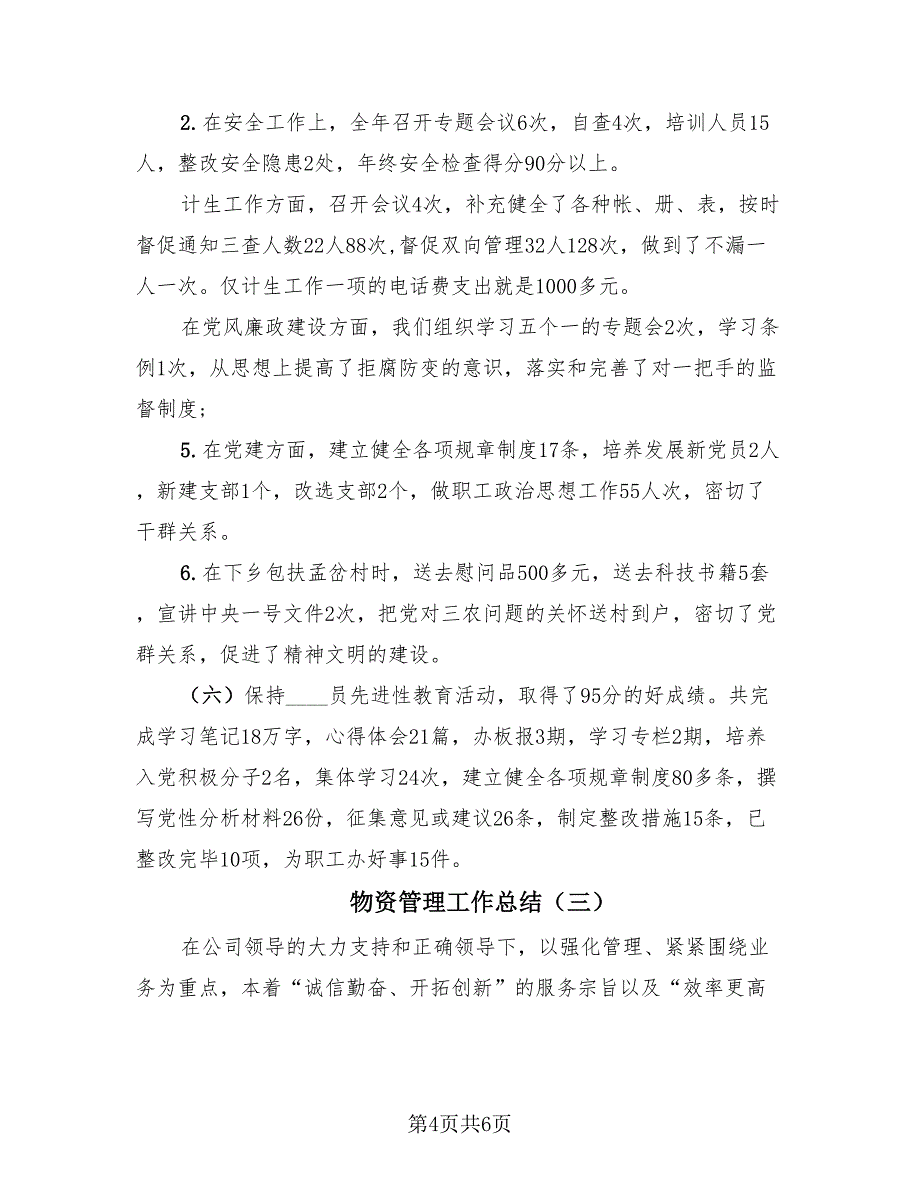 2.在安全工作上，全年召开专题会议6次，自查4次，培训人员15
人，整改安全隐患2处，年终安全检查得分90分以上。
计生工作方面，召开会议4次，补充健全了各种帐、册、表，按时
督促通知三查人数22人88次,督促双向管理32人128次，做到了不漏一
人一次。仅计生工作一项的电话费支出就是1000多元。
在党风廉政建设方面，我们组织学习五个一的专题会2次，学习条
例1次，从思想上提高了拒腐防变的意识，落实和完善了对一把手的监
督制度;
5.在党建方面，建立健全各项规章制度17条，培养发展新党员2人
，新建支部1个，改选支部2个，做职工政治思想工作55人次，密切了
干群关系。
6.在下乡包扶孟岔村时，送去慰问品500多元，送去科技书籍5套
，宣讲中央一号文件2次，把党对三农问题的关怀送村到户，密切了党
群关系，促进了精神文明的建设。
（六）保持____员先进性教育活动，取得了95分的好成绩。共完
成学习笔记18万字，心得体会21篇，办板报3期，学习专栏2期，培养
入党积极分子2名，集体学习24次，建立健全各项规章制度80多条，撰
写党性分析材料26份，征集意见或建议26条，制定整改措施15条，已
整改完毕10项，为职工办好事15件。
物资管理工作总结（三）
在公司领导的大力支持和正确领导下，以强化管理、紧紧围绕业
务为重点，本着“诚信勤奋、开拓创新”的服务宗旨以及“效率更高
第4页共6页